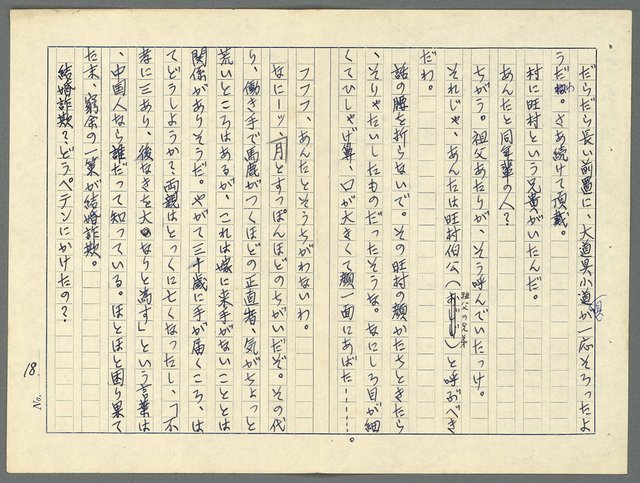 だらだら長い前置に、大道具小道具が一応そろったよ
うだわ。さあ続けて頂戴。
村に旺村という兄貴がいたんだ。
あんたと同年輩の人？
ちがう。祖父あたりが、そう呼んでいたっけ。
それじゃ、あんたは旺村伯公（祖父の兄弟）と呼ぶべき
だわ。
話の腰を折らないで。その旺村の顔かたちときたら
、そりゃたいしたものだったそうな。なにしろ目が細
くてひしゃげ鼻、口が大きくて顔一面にあばた……
フフフ、あんたとそうちがわないわ。
なにーッ、月とすっぽんほどのちがいだぞ。その代
り、働き手で馬鹿がつくほどの正直者、気がちょっと
荒いところはあるが、これは嫁に来手がないことと
関係がありそうだ。やがて三十歳に手が届くころ、は
てどうしようか？両親はとっくに亡くなったし、「不
孝に三あり、後なきを大なりと為す」という言葉は
、中国人なら誰だって知っている。ほとほと困り果て
た末、窮余の一策が結婚詐欺。
結婚詐欺？どうペテンにかけたの？
18
No.